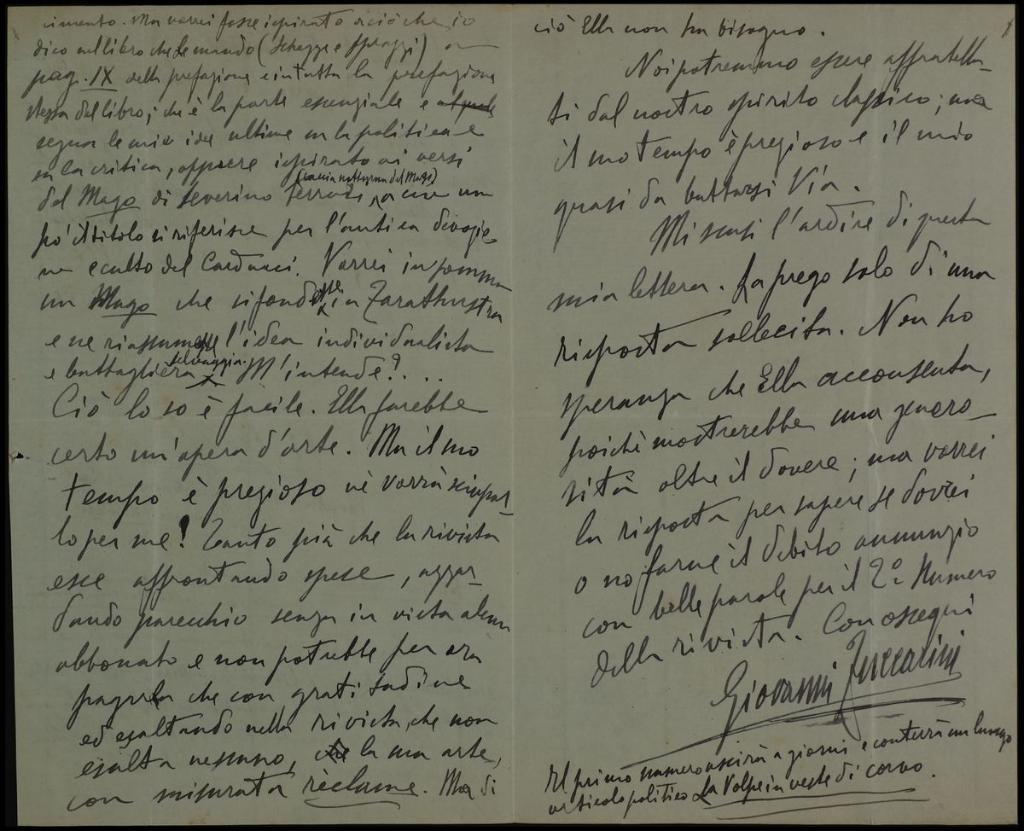 cimento. Ma vorrei fosse ispirato a ciò che io
dico nel libro che le mando (Schegge e sprazzi) a
pag. IX della prefazione e in tutta la prefazione
stessa del libro; che è la parte essenziale e
segna le mie idee ultime su la politica e
su la critica, oppure ispirato ai versi
(caccia notturna del Mago)
del Mago di Severino Ferrari, a cui un
po' il titolo si riferisce per l'antica devozio-
ne e culto del Carducci. Vorrei insomma
un Mago che si fondesse in Zarathustra
e ne riassumesse l'idea individualista
e battagliera selvaggia. M'intende?...
Ciò lo so è facile. Ella farebbe
certo un'opera d'arte. Ma il suo
tempo è prezioso nè vorrà sciupar-
lo per me! Tanto più che la rivista
esce affrontando spese, azzar-
dando parecchio senza in vista alcun
abbonato e non potrebbe per ora
pagarla che con gratitudine
ed esaltando nella rivista, che non
esalta nessuno, la sua arte,
con misurata rèclame. Ma di
ciò Ella non ha bisogno.
Noi potremmo essere affratella-
ti dal nostro spirito classico; ma
il suo tempo è prezioso e il mio
quasi da buttarsi via.
Mi scusi l'ardire di questa
mia lettera. La prego solo di una
risposta sollecita. Non ho
speranza che Ella acconsenta,
poichè mostrerebbe una genero-
sità oltre il dovere; ma vorrei
la risposta per sapere se dovrei
o no farne il debito annunzio
con belle parole per il 2º Numero
della rivista. Con ossequi
Giovanni Zuccarini
Il primo numero uscirà a giorni e conterrà un lungo
articolo politico La Volpe in veste di corvo.